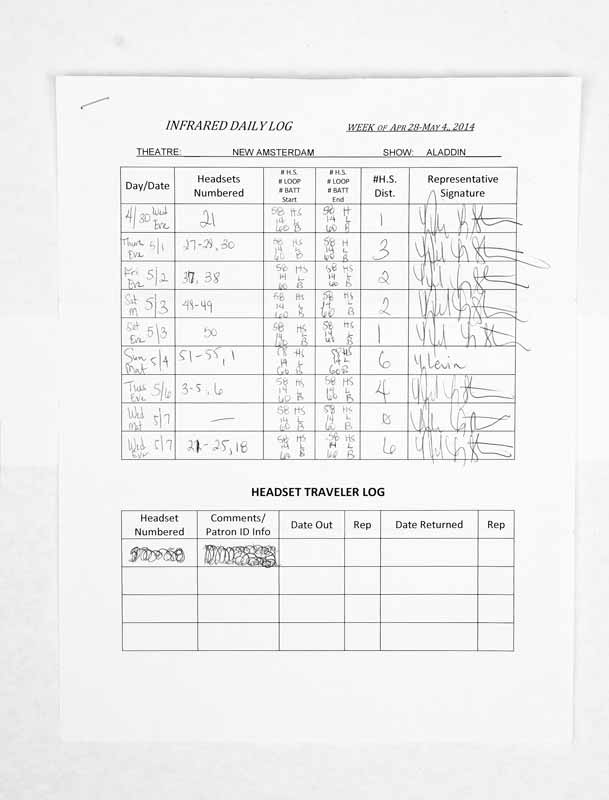 INFRARED DAILY LOG WEEK OF APR 28-MAY 4, 2014
THEATRE: NEW AMSTERDAM SHOW: ALADDIN
Day/Date Headsets Numbered # H.S. # LOOP # BATT Start # H.S. # LOOP # BATT End #H.S. Dist. Representative Signature
4/30 Wed Eve 21 58 HS 14 L 60 B 58 H 14 L 60 B 1
Thurs Eve 5/1 27-29, 30 58 HS 14 L 60 B 58 H 14 L 60 B 3
Fri Eve 5/2 37, 38 58 HS 14 L 60 B 58 HS 14 L 60 B 2
Sat M 5/3 48-49 58 HS 14 L 60 B 58 HS L 60 B 2
Sat Eve 5/3 50 58 HS 14 L 60 B 58 HS 14 L B 1
Sun Mat 5/4 51-55, 1 58 HS 14 L 60 B 58 HS 14 L 60 B 6 Y Levin
Tues Eve 5/6 3-5, 6 58 HS 14 L 60 B 58 HS 14 L 60 B 4
Wed Mat 5/7 — 58 HS 14 L 60 B 58 HS 14 L 60 B
Wed Eve 5/7 -25, 18 58 HS 14 L 60 B 58 HS 14 L 60 B 6
HEADSET TRAVELER LOG
Headset Numbered Comments/ Patron ID Info Date Out Rep Date Returned Rep